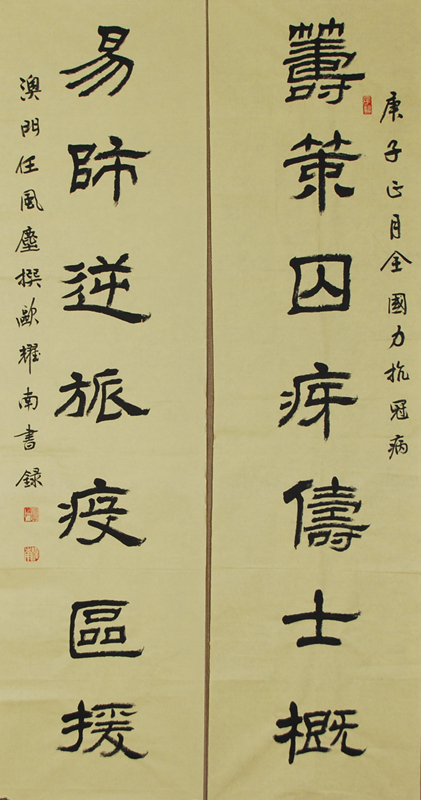 庚子正月全國力抗冠病
籌策囚儔士概
易師逆旅疫區援
澳門任風塵撰歐耀南書録